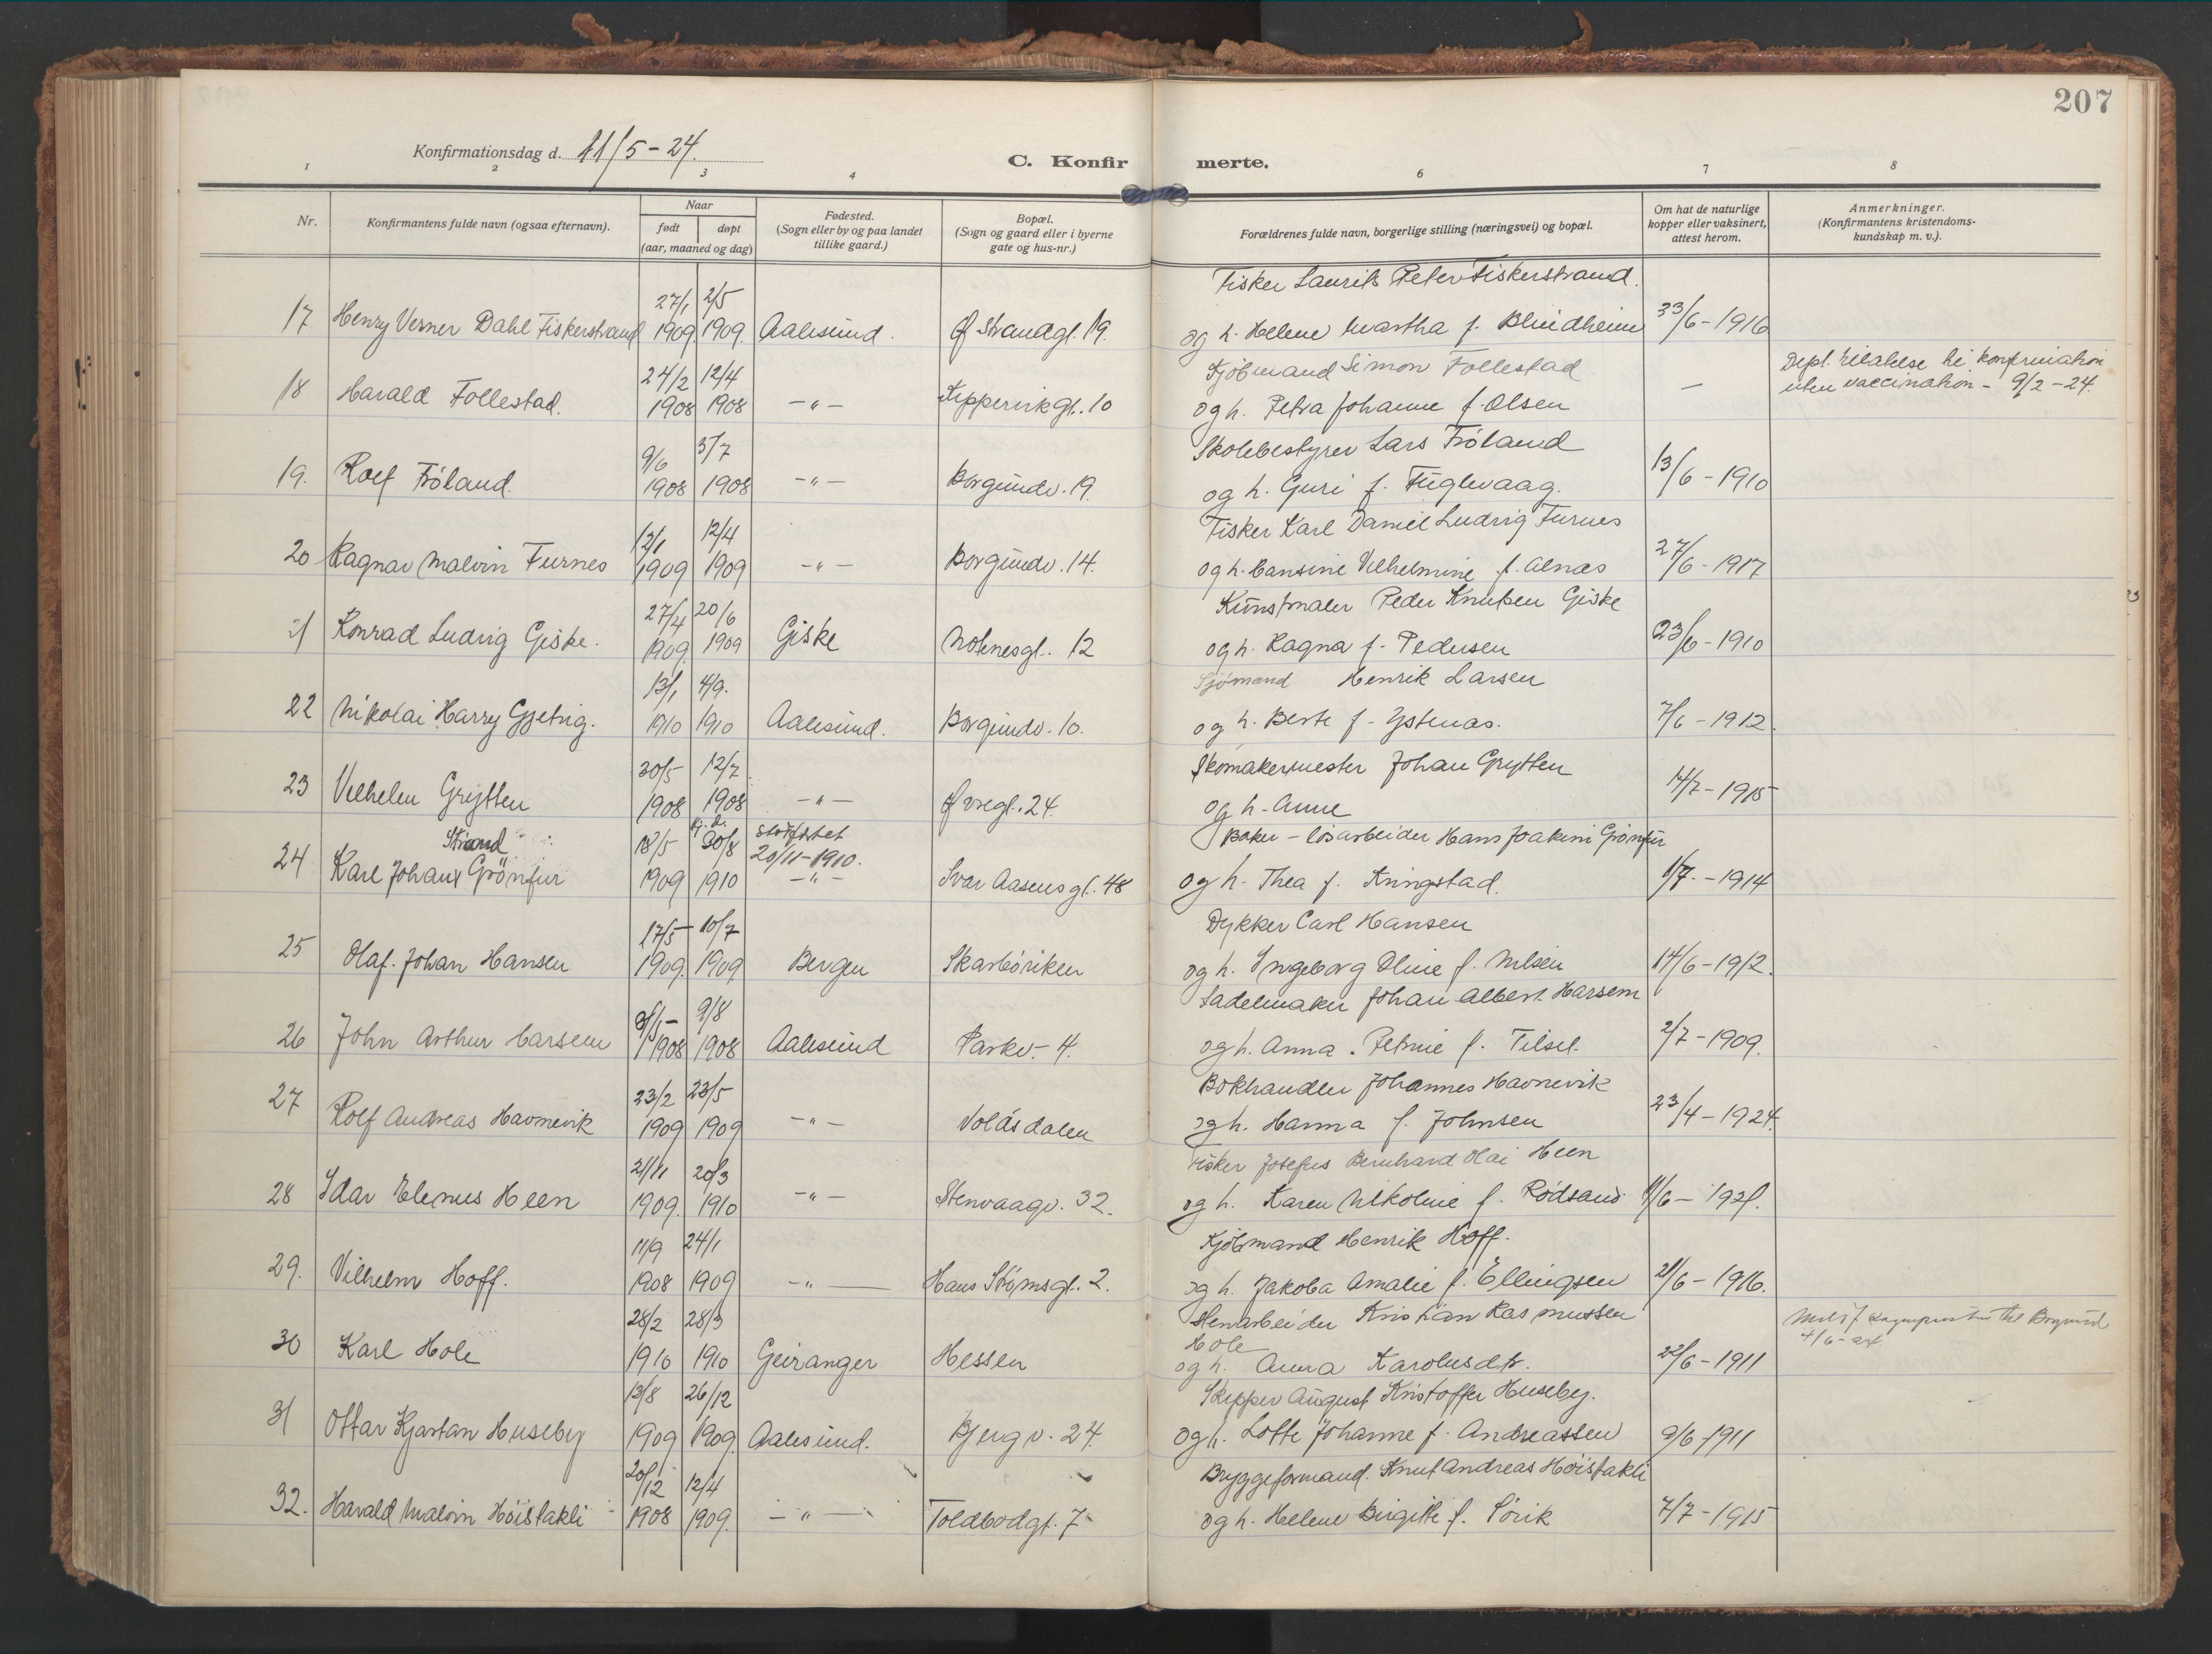 207
Konfirmationsdag d. 11/5-24.
C. Konfirmerte.
1 2 3 4 6 7 8
Nr. Konfirmantens fulde navn (ogsaa efternavn). Naar født døpt (aar, maaned og dag) Fødested. (Sogn eller by og paa landet tillike gaard.) Bopæl. (Sogn og gaard eller i byerne gate og hus-nr.) Forældrenes fulde navn, borgerlige stilling (næringsvei) og bopæl. Om hat de naturlige kopper eller vaksinert, attest herom. Anmerkninger. (Konfirmantens kristendomskundskap m. v.).
27/1 2/5 Fisker Laurits Peter Fiskerstrand.
17. Henry Verner Dahl Fiskerstrand 1909. 1909. Aalesund. Ø Strandgt. 19. og h. Helene Martha f. Blindheim /6-1916
24/2 12/4 Kjöbmand Simon Follestad Dept. tillatelse til konfirmation
18 Harald Follestad. 1908 1908 -"- Kippervikgt. 10 og h. Petra Johanne f. Olsen - uten vaccination - 9/2-24.
9/6 3/7 Skolebestyrer Lars Fröland
19. Rolf Fröland. 1908 1908 -"- Borgundv. 19. og h. Guri f. Fuglevaag. 13/6-1910
12/1 12/4 Fisker Karl Daniel Ludvig Furnes
20 Ragnar Malvin Furnes 1909 1909 -"- Borgundv. 14. og h. Hansine Vilhelmine f. Alnæs 27/6-1917
27/4 20/6 Kunstmaler Peder Knutsen Giske
21 Konrad Ludvig Giske. 1909. 1909 Giske Notenesgt. 12 og h. Ragna f. Pedersen 23/6-1910
13/1 4/9. Sjömand Henrik Larsen
22 Nikolai Harry Gjetvig. 1910 1910 Aalesund. Borgundv. 10. og h. Berte f. Ystenæs. 7/6-1912.
30/5 12/7 Skomakermester Johan Grytten
23 Vilhelm Grytten 1908 1908 -"- Øvregt. 24. og h. Anne 14/7-1915
Strand 18/5 hj. d. 30/8 stadfæstet 20/11-1910. Baker - lösarbeider Hans Joakim Grönfur
24 Karl Johan Grönfur 1909 1910 -"- Ivar Aasensgt. 48 og h. Thea f. Kringstad. 1/7-1914
17/5 10/7 Dykker Carl Hansen
25 Olaf Johan Hansen 1909. 1909 Bergen Skarböviken og h. Ingeborg Oline f. Nilsen 14/6-1912.
9/8 Sadelmaker Johan Albert Harsem
26 John Arthur Harsem 1908 1908 Aalesund Parkv. 4. og h. Anna Petrine f. Tilsel. 2/7-1909.
23/2 23/5 Bokhandler Johannes Havnevik
27 Rolf Andreas Havnevik 1909 1909 -"- Volásdalen og h. Hanna f. Johnsen 23/4-1924.
21/11 20/3 Fisker Josefus Bernhard Olai Heen
28 Idar Elenus Heen 1909. 1910 -"- Stenvaagv. 32. og h. Karen Nikoline f. Rödsand 11/6-1921.
11/9 24/1 Kjöbmand Henrik Hoff.
29. Vilhelm Hoff. 1908 1909 -"- Hans Strömsgt. 2. og h. Jakoba Amalie f. Ellingsen 21/6-1916.
28/2 28/3 Stenarbeider Kristian Rasmussen Hole
30 Karl Hole 1910 1910 Geiranger Hessen og h. Anna Karolusdtr. 22/6-1911 til Borgund 4/6-24.
13/8 26/12 Skipper August Kristoffer Huseby.
31 Ottar Kjartan Huseby 1909 1909. Aalesund. Bjergv. 24. og h. Lotte Johanne f. Andreassen 9/6-1911
20/12 12/4 Bryggeformand Knut Andreas Höistakli
32. Harald Malvin Höistakli 1908 1909. -"- Toldbodgt. 7 og h. Helene Birgitte f. Sörik 7/7-1915